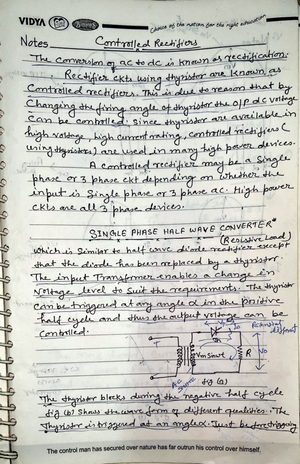 VIDYA
Choice of the nation for the right education
Notes
Controlled Rectifiers
The conversion of ac to dc is known as rectification.
Rectifier ckts using thyristor are known as
Controlled rectifiers. This is due to reason that by
Changing the firing angle of thyristor the o/p dc voltage
Can be controlled. Since thyristor are available in
high voltage, high current rating, controlled rectifiers (
using thyristors) are used in many high power devices.
A controlled rectifier may be a Single
phase or 3 phase ckt depending on whether the
input is Single phase or 3 phase ac. High power
ckts are all 3 phase devices.
SINGLE PHASE HALF WAVE CONVERTER"
(Resistive Load)
Which is Similar to half wave diode rectifier except
that the diode has been replaced by a thyristor.
The input Transformer enables a change in
Voltage level to Suit the requirements. The thyristor
can be triggered at any angle α in the positive
half cycle and thus the output voltage can be
Controlled.
Vm sinwt
R
Vo
AC
fig (a)
The thyristor blocks during the negative half cycle
fig (b) Shows the wave form of different quantities. The
Thyristor is triggered at an angle α. Just before triggering
The control man has secured over nature has far outrun his control over himself.